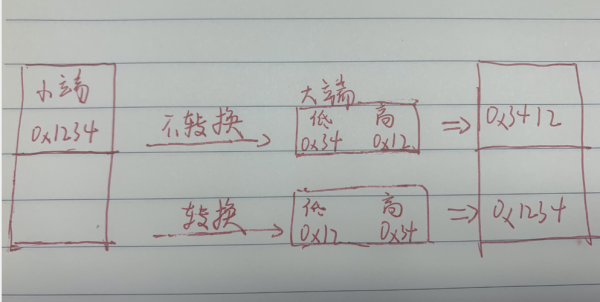 小端
0x1234
不转换
大端
低 高
0x34 0x12
⇒
0x3412
转换
低 高
0x12 0x34
⇒
0x1234